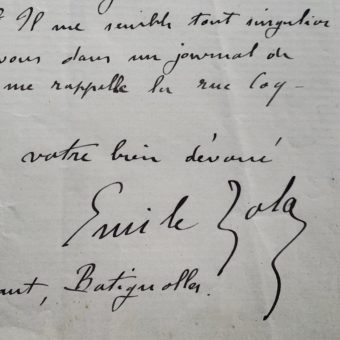 ? Il me semble tout singulier
vous dans un journal de
me rappelle la rue Coq-
votre bien dévoué
Emile Zola
Batignolles.